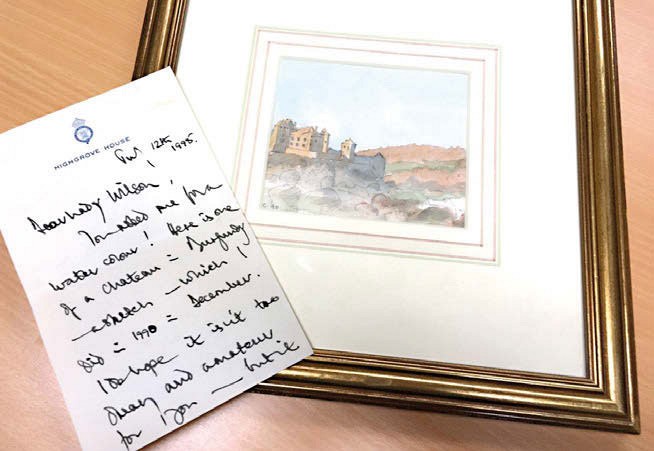 HIGHGROVE HOUSE
12th 1995.
Dear Lady Wilson,
You asked me for a
water colour! Here is one
of a chateau in Burgundy
— a sketch — which I
did in 1990 in December.
I do hope it isn't too
and amateur
for you — but it